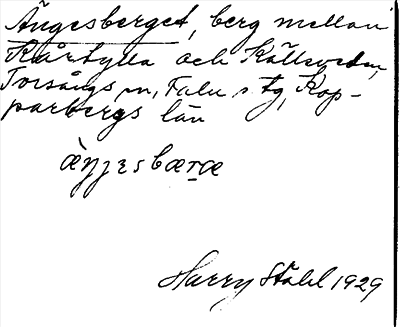 Ängesberget, berg mellan
Kårtylla och Källsveden,
Torsångs sn, Falu s tg, Kop-
parbergs län
Harry Ståhl 1929